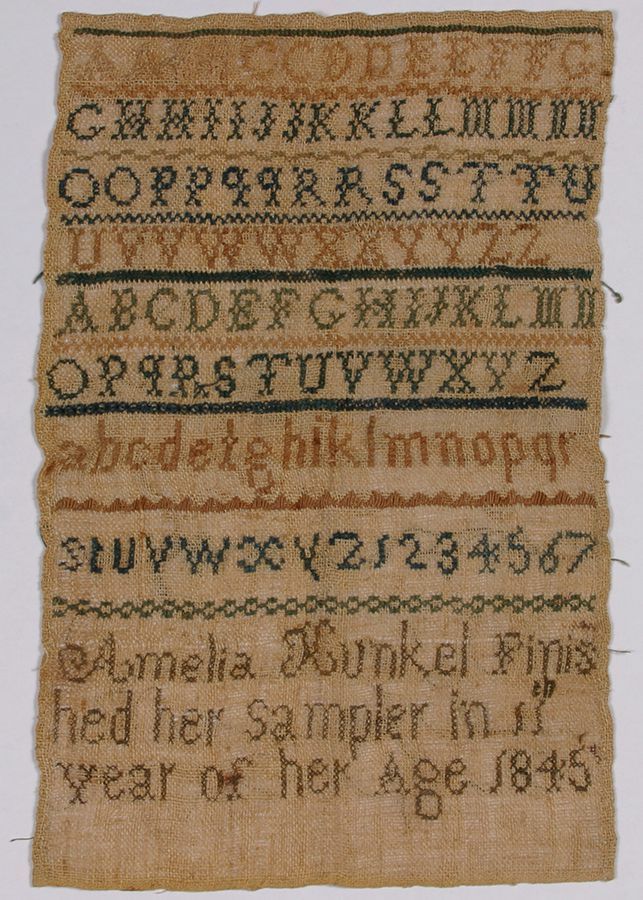 A A B B C C D D E E F F G
G H H I I J J K K L L M M N N
O O P P q q R R S S T T U
U V V W W X X Y Y Z Z
A B C D E F G H I J K L M N
O P q R S T U V W X Y Z
a b c d e f g h i k l m n o p q r
s t u v w x y z 1 2 3 4 5 6 7
Amelia Kunkel Finis
hed her sampler in 11th
year of her Age 1845